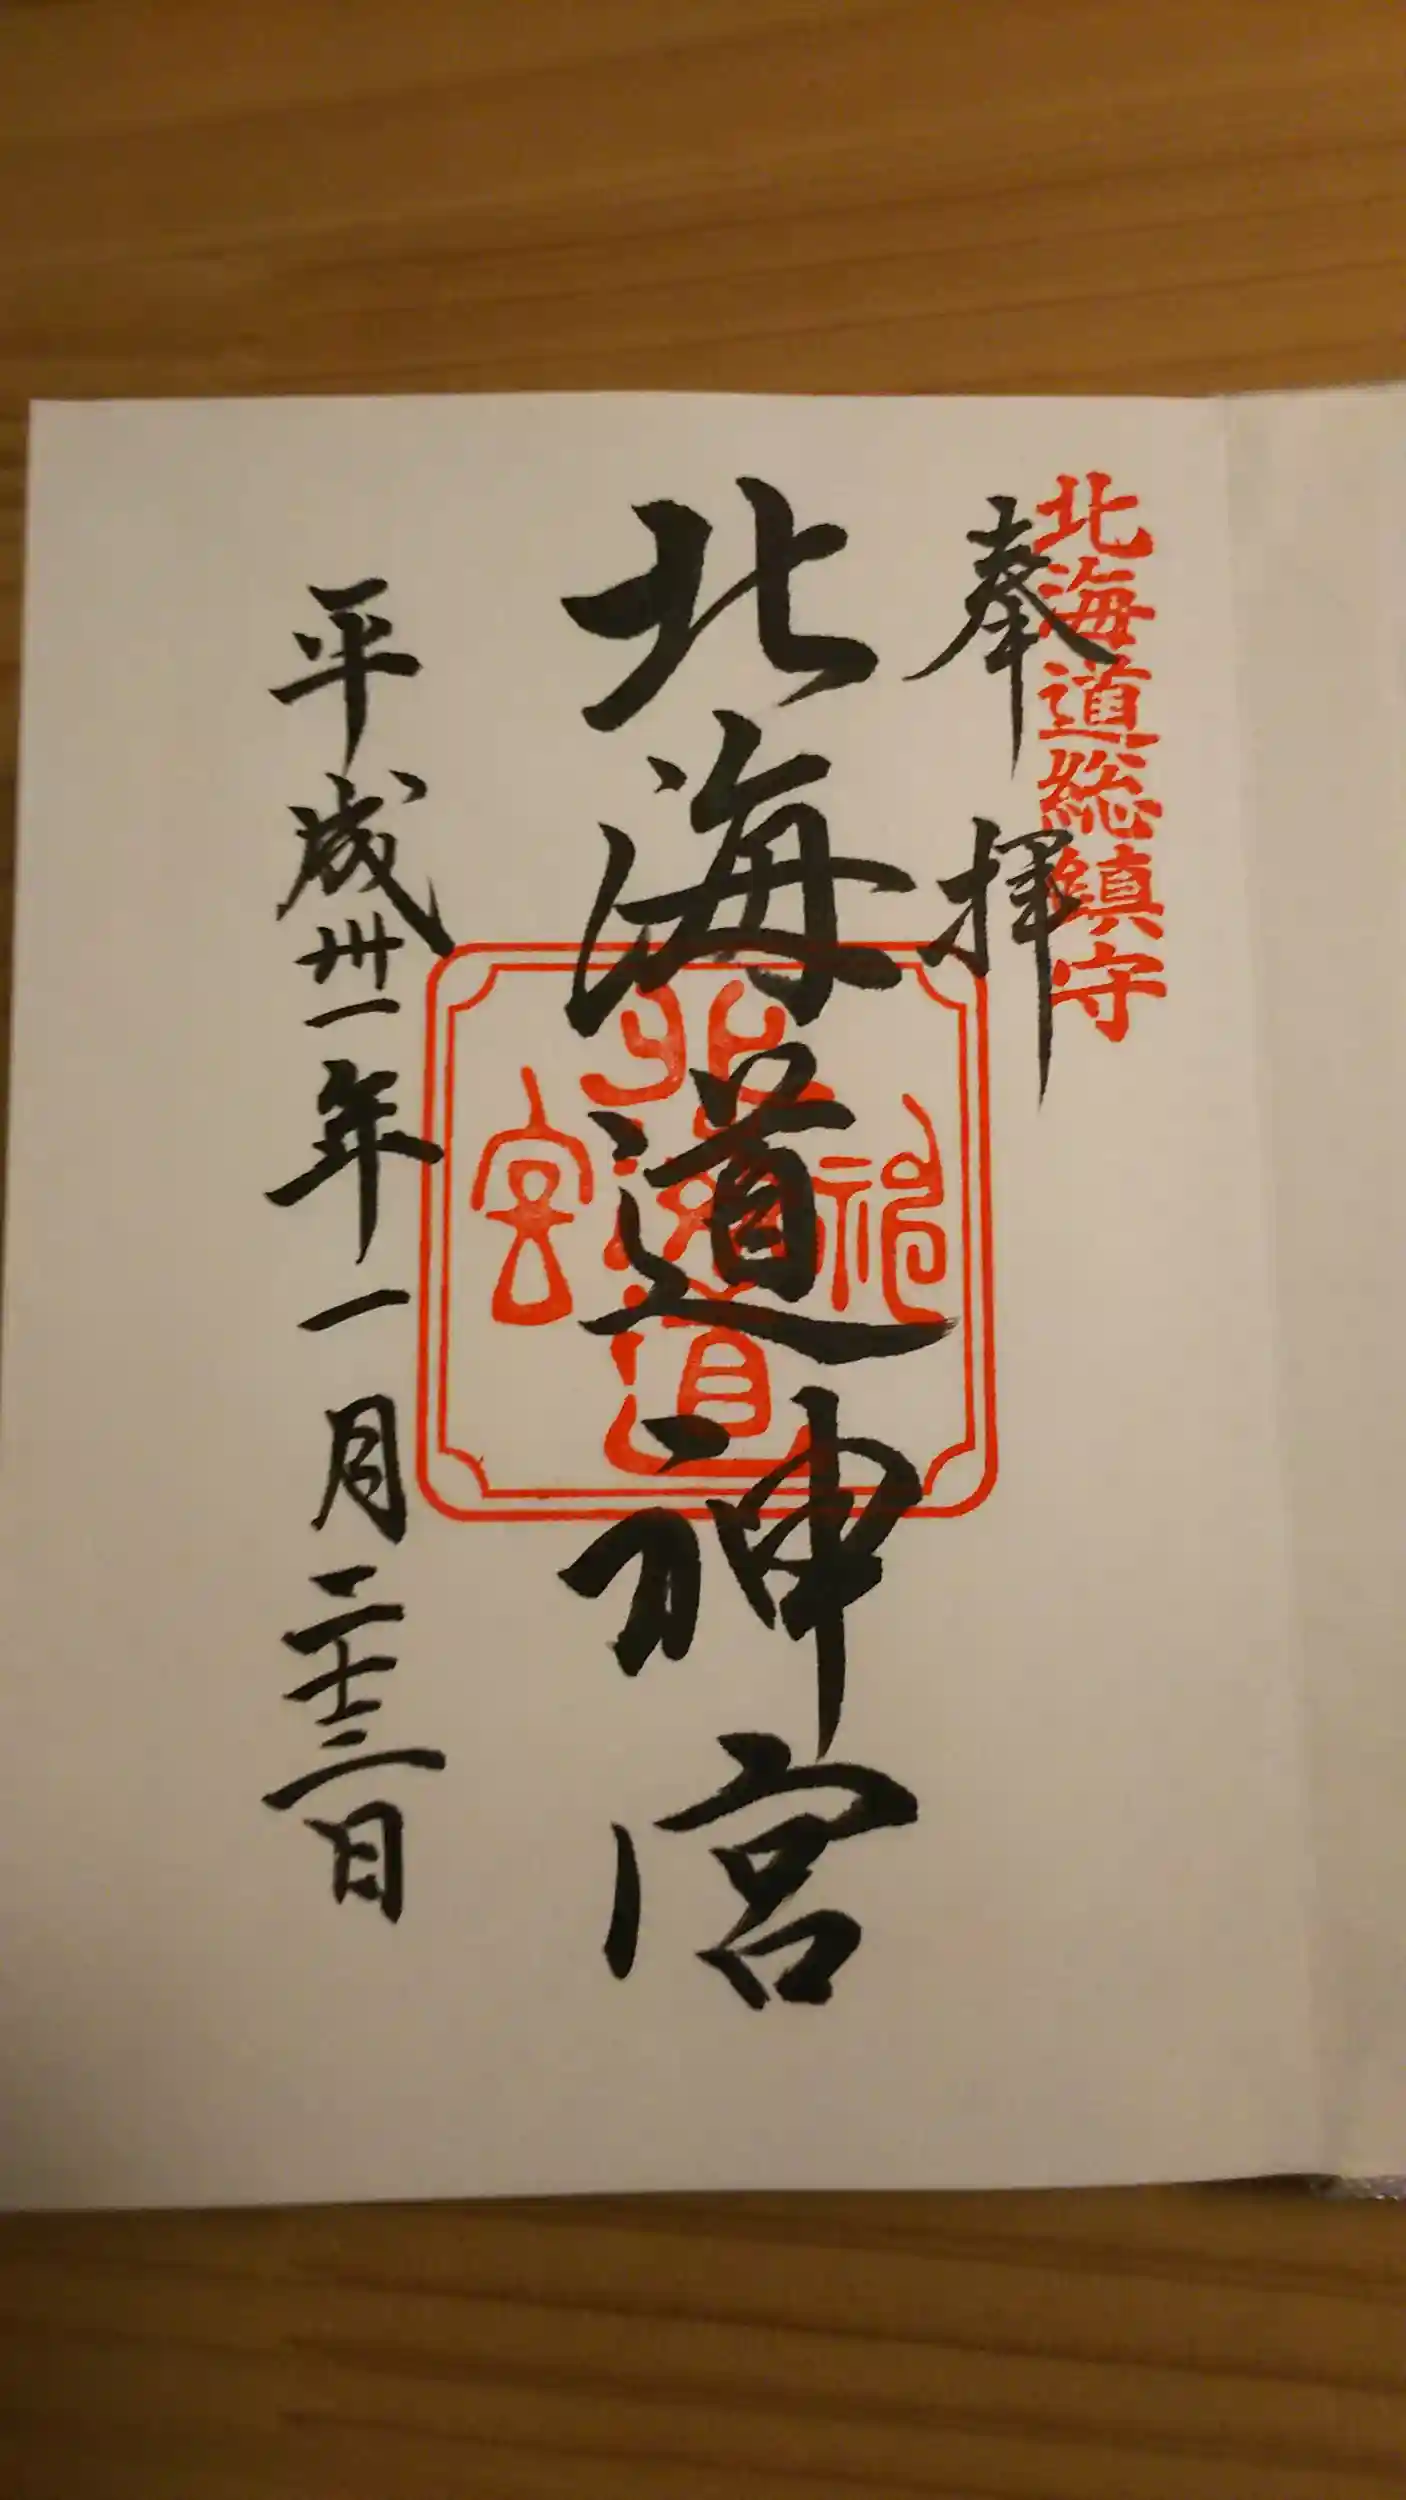 北海道総鎮守
奉拝
北海道神宮
北海道神宮
平成卅一年一月二十三日